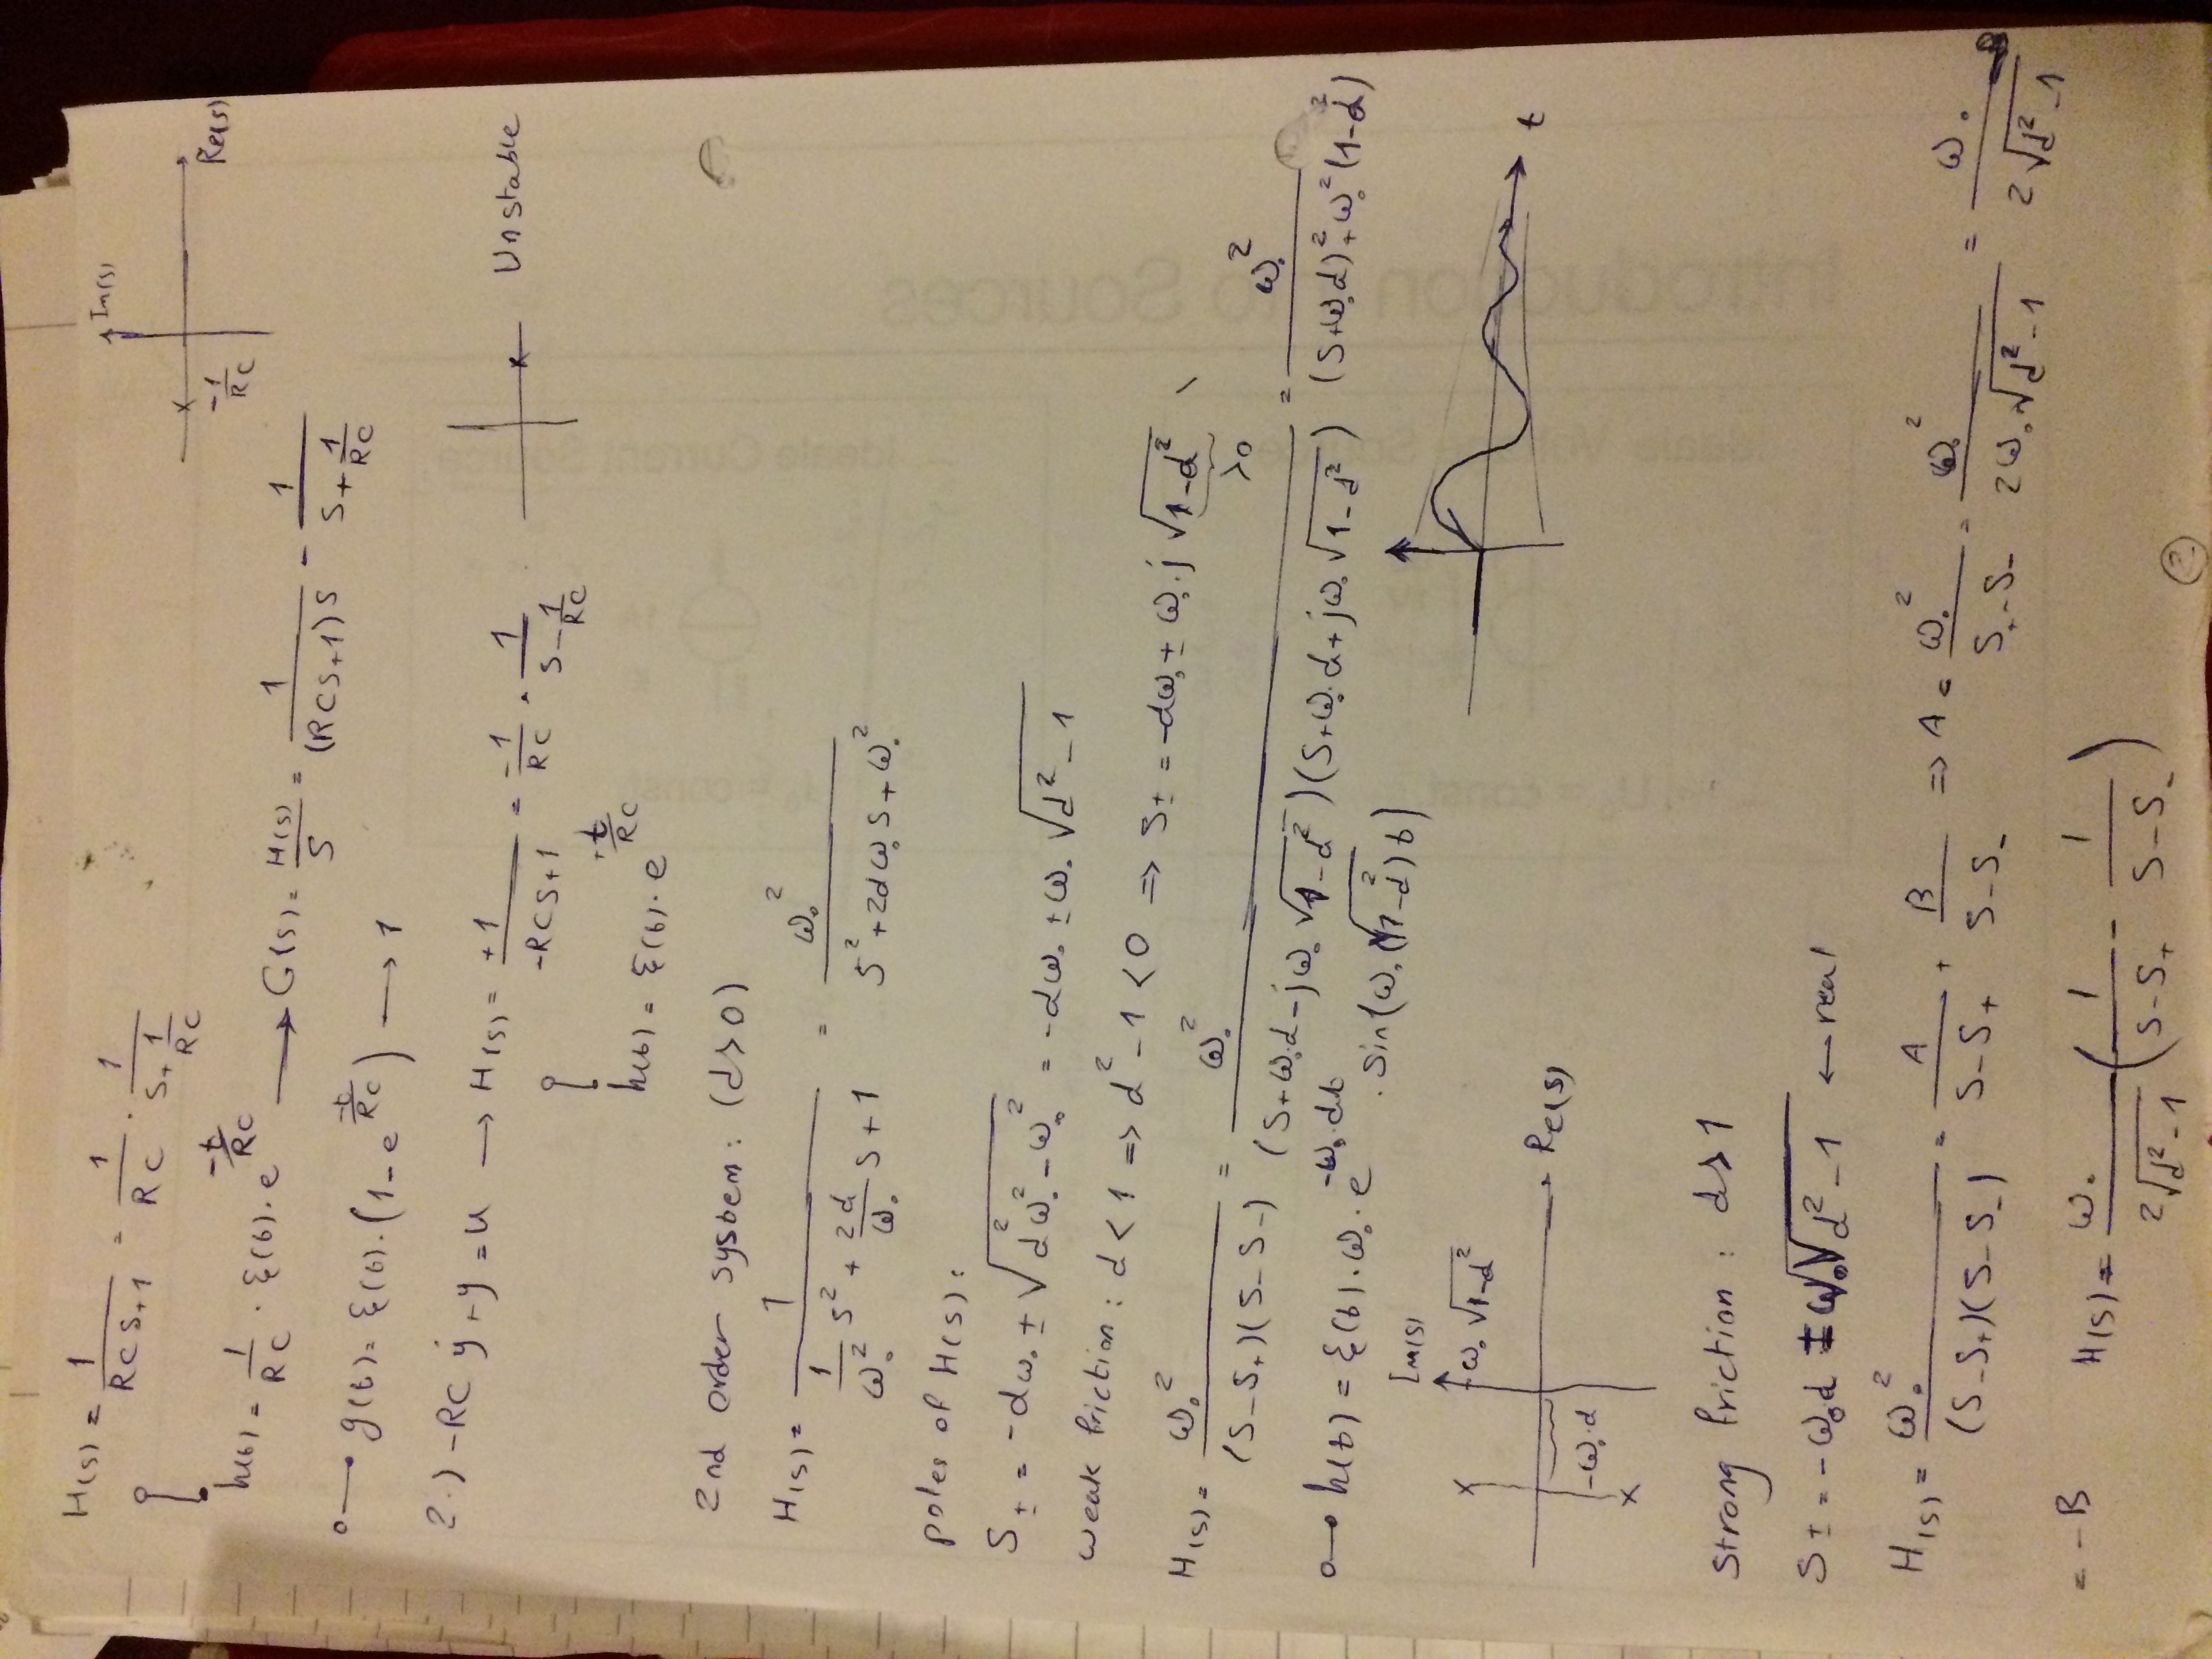 H(s) = 1/(RCs+1) = 1/RC · 1/(s+1/RC)
Im(s)
Re(s)
-1/RC
h(t) = 1/RC · ε(t) · e^(-t/RC) → G(s) = H(s)/s = 1/((RCs+1)s) - 1/(s+1/RC)
g(t) = ε(t)·(1-e^(-t/RC)) → 1
2.) -RC ẏ + y = u → H(s) = +1/(-RCs+1) = -1/RC · 1/(s-1/RC)
Unstable
h(t) = ε(t)·e^(+t/RC)
2nd order system: (d>0)
H(s) = 1/(1/ω₀² s² + 2d/ω₀ s + 1) = ω₀²/(s²+2dω₀s+ω₀²)
poles of H(s):
S± = -dω₀ ± √(d²ω₀²-ω₀²) = -dω₀ ± ω₀ √(d²-1)
weak friction: d<1 => d²-1<0 => S± = -dω₀ ± ω₀·j √(1-d²)
>0
H(s) = ω₀²/((S-S₊)(S-S₋)) = ω₀²/((S+ω₀d-jω₀√(1-d²))(S+ω₀d+jω₀√(1-d²))) = ω₀²/((S+ω₀d)²+ω₀²(1-d²))
h(t) = ε(t)·ω₀·e^(-ω₀·dt) · sin(ω₀(√(1-d²))t)
Im(s)
ω₀ √(1-d²)
Re(s)
-ω₀d
t
strong friction: d>1
S± = -ω₀d ± ω₀√(d²-1) ← real
H(s) = ω₀²/((S-S₊)(S-S₋)) = A/(S-S₊) + B/(S-S₋) => A = ω₀²/(S₊-S₋) = ω₀²/(2ω₀√(d²-1)) = ω₀/(2√(d²-1))
= -B H(s) = ω₀/(2√(d²-1)) (1/(S-S₊) - 1/(S-S₋))
2